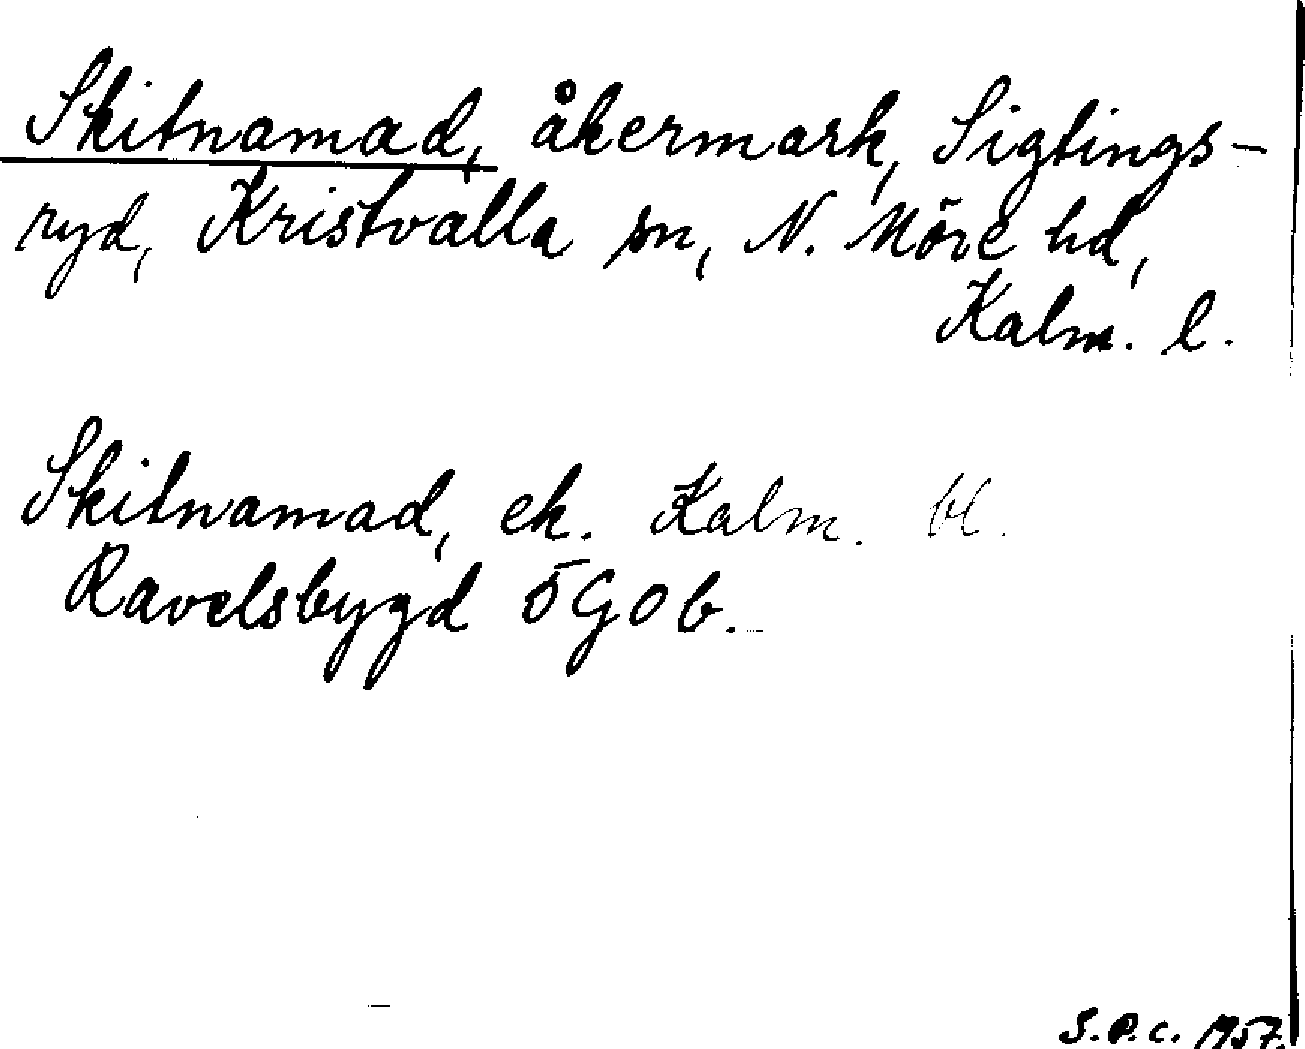 Skitnamad, åkermark, Sigtings-
ryd, Kristvalla sn, N. Möre hd,
Kalm. l.
Skitnamad, ek. Kalm. bl.
Ravelsbygd 5 G o b.
S.P.C. 1957.